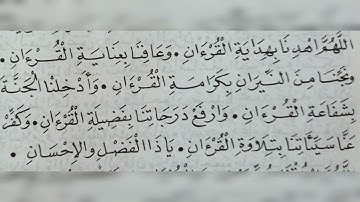 اللَّهُمَّ اهْدِنَا بِهِدَايَةِ الْقُرْءَانِ • وَعَافِنَا بِعِنَايَةِ الْقُرْءَانِ •
وَنَجِّنَا مِنَ النِّيرَانِ بِكَرَامَةِ الْقُرْءَانِ • وَأَدْخِلْنَا الْجَنَّةَ
بِشَفَاعَةِ الْقُرْءَانِ • وَارْفَعْ دَرَجَاتِنَا بِفَضِيلَةِ الْقُرْءَانِ • وَكَفِّرْ
عَنَّا سَيِّئَاتِنَا بِتِلَاوَةِ الْقُرْءَانِ • يَاذَا الْفَضْلِ وَالْإِحْسَانِ •